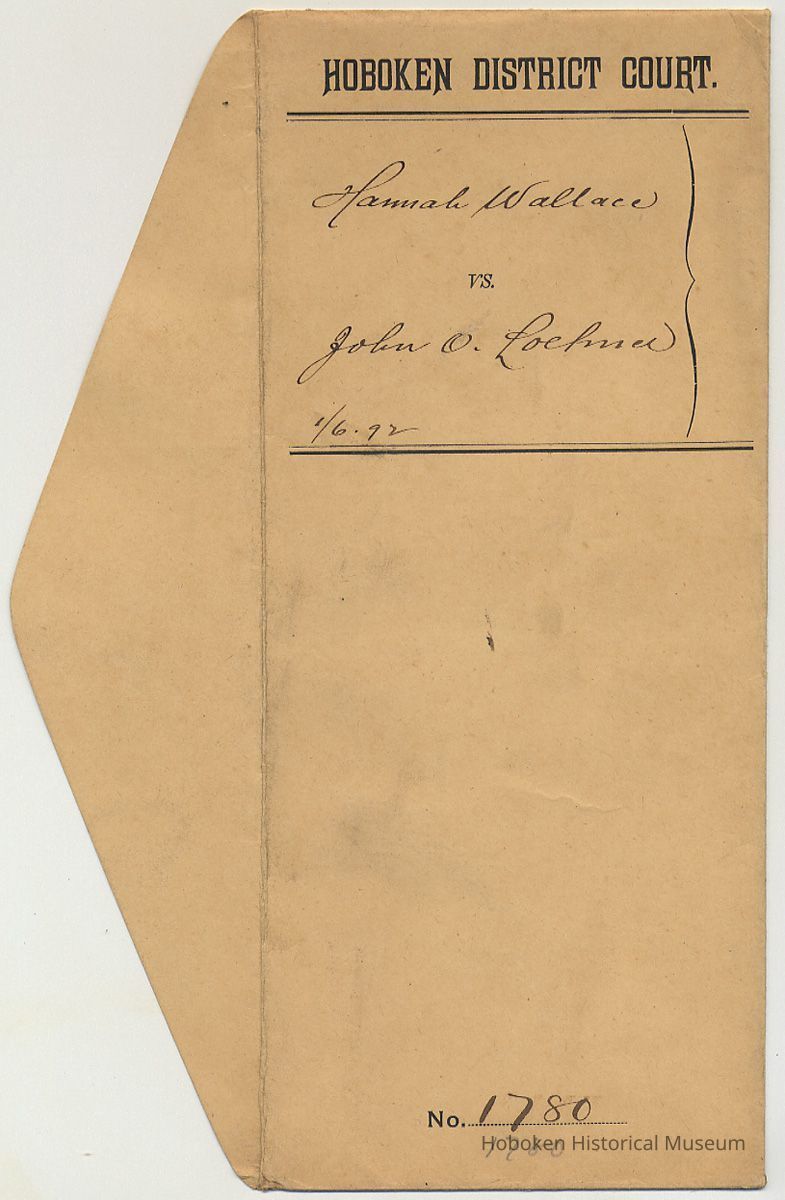 HOBOKEN DISTRICT COURT.
Hannah Wallace
vs.
John O.
1/6.92
No. 1780
Hoboken Historical Museum